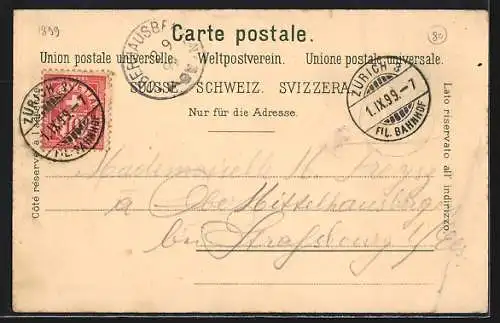 1899
80
Carte postale.
Union postale universelle. Weltpostverein. Unione postale universale.
SUISSE. SCHWEIZ. SVIZZERA.
Nur für die Adresse.
ZÜRICH
1.IX.99.-7
FIL. BAHNHOF
ZÜRICH
1.IX.99.-7
FIL. BAHNHOF
Côté réservé à l'adresse.
Lato riservato all' indirizzo
Mademoiselle
à Ober Mittelhausbergen
bei Strassburg i/Els